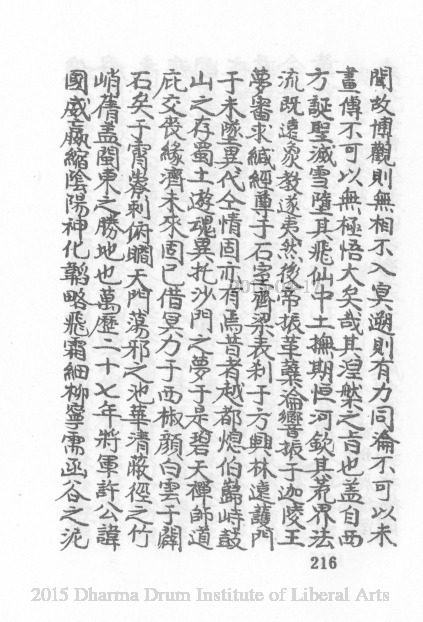 聞故博觀則無相不入冥遡則有力同淪不可以未
畫傳不可以無極悟大矣哉其涅槃之旨也蓋自西
方誕聖滅雪墮其飛仙中土撫期恒河欽其荒界法
流既遠象教遂夷然後帝振華藥淪響振于迦陵王
夢審求緘經蓴于石室齊梁表刹于方興林遠護門
于未墜異代仝情固亦有焉昔者越都熄伯巋峙鼓
山之存蜀土遊魂異托沙門之夢于是碧天禪師道
庇交喪緣濟未來固已借冥力于西椒顏白雲于闢
石矣于霄崣剌俯瞷天門蕩邪之池華清蔽徑之竹
峭蒨蓋閩東之勝地也萬歷二十七年將軍許公諱
國威嬴縮陰陽神化韜略飛霜細柳寧需函谷之泥
216
2015 Dharma Drum Institute of Liberal Arts